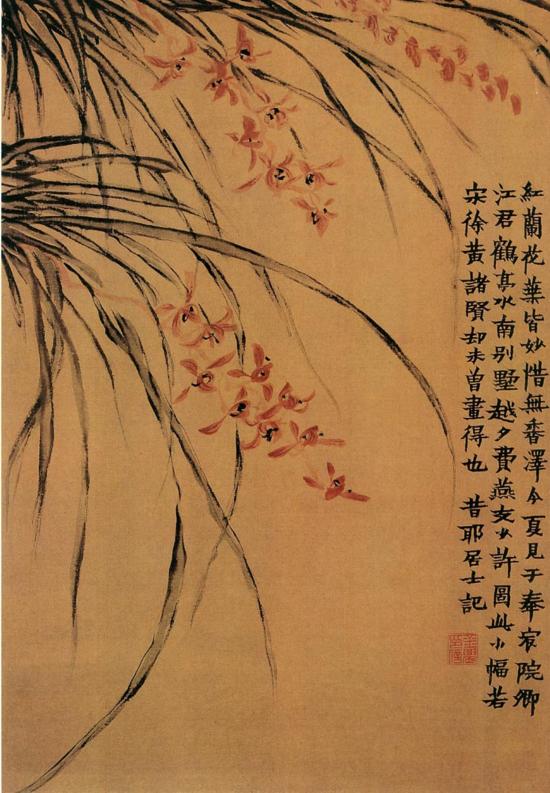 紅蘭花葉皆妙惜無香澤今夏見于奉宸院卿
江君鶴亭水南別墅越夕費燕支少許圖此小幅若
宋徐黃諸賢却未曽畫得也　昔耶居士記